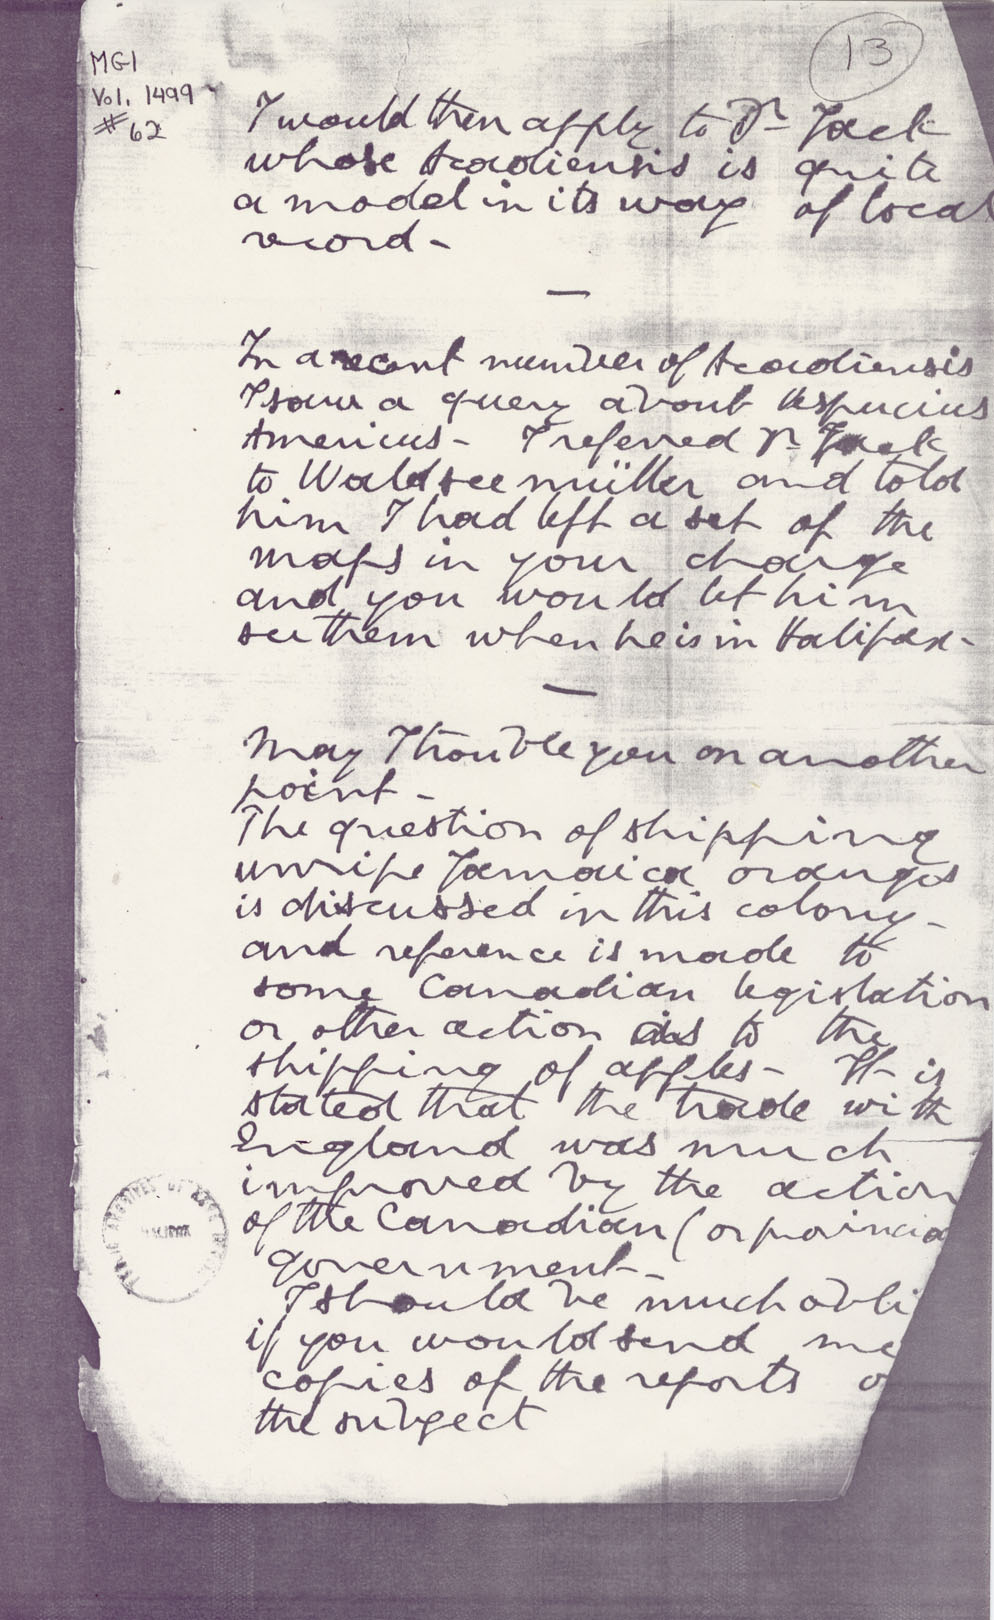 13
MG1
Vol. 1499
#62
I would then apply to Dr Jack
whose Acadiensis is quite
a model in its way of local
record -
—
In a recent number of Acadiensis
I saw a query about Vespucius
Americus - I referred Dr Jack
to Waldseemüller and told
him I had left a set of the
maps in your charge
and you would let him
see them when he is in Halifax -
—
May I trouble you on another
point -
The question of shipping
unripe Jamaica oranges
is discussed in this colony -
and reference is made to
some Canadian legislation
or other action as to the
shipping of apples - It is
stated that the trade with
England was much
improved by the action
of the Canadian (or provincia
government -
I should be much obli
if you would send me
copies of the reports o
the subject
PUBLIC ARCHIVES OF NOVA SCOTIA
HALIFAX